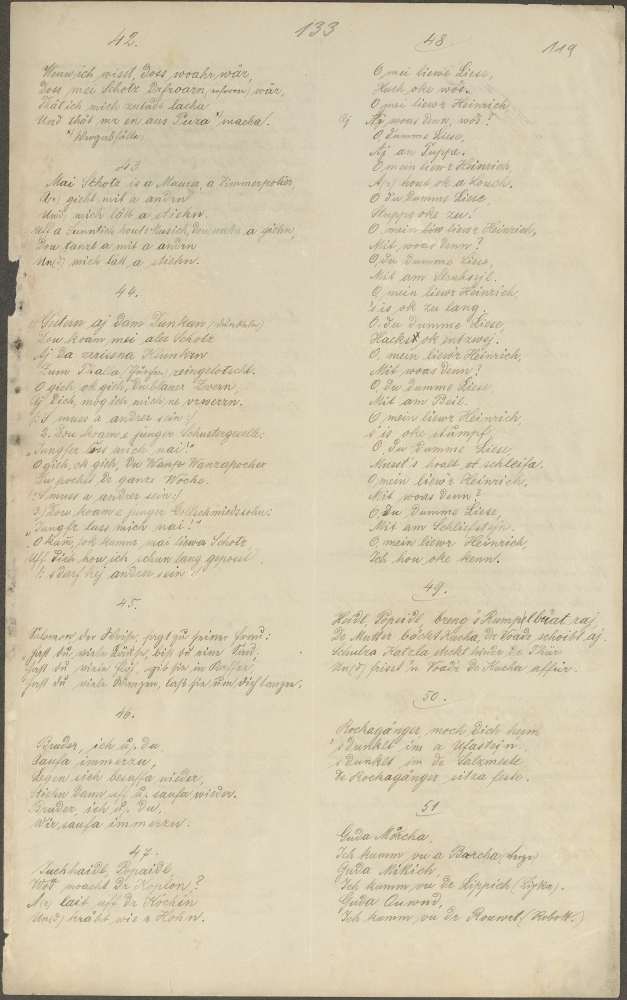 133
119
42.
Wenn ich wisst, doss woahr wär,
Doss mei Schotz Drfroarn (erfroren) wär,
Thät ich mich zutudt lacha
Und thät mr en aus Puxa macha.
43
Mai Schotz is a Maura, a Zimmerpolier,
gieht mit a andrn
Und mich lått a stiehn.
Uff a Sunntich hout Musich, dou
Dou tanzt a mit a andrn
Un(d) mich lått a stiehn.
44.
Gestern aj dam Dunkan (Dunkeln)
Dou koam mei ales Schotz
Aj da zerissna Klunkrn
Zum reingelotscht.
O gieh, ok gieh, Du blauer Zwern
Aj Dich, mög ich mich ne vrwerrn.
|: 'S muss a andrer sein :|
2. Dou koam e junger Schustergeselle:
"Jungfer låss mich nai!"
O gieh, ok gieh, Du Wanza-Wanzapocher
Du pochst de ganze Woche.
|: 'S muss a andrer sein :|
3. Dou koam e junger Goldschmiedssohn:
"Jungfr lass mich nai!"
"O kumm, ok kumm, mai liewer Schotz,
Uff Dich hou ich schun lang geposst
|: s'darf kej andrer sein :|
45.
Salomon der Weise, sagt zu seiner Frau:
hast du viele Läuse, bist du eine Sau.
hast du viele Flöh,
hast du viele Wanzen, lass sie um dich tanzen.
46.
Bruder, ich u. Du
Saufa immerzu,
Legen sich besuffa nieder,
Stiehn dann uff u. saufa wieder.
Bruder, ich u. Du,
Wir saufa immerzu.
47.
Juchhaidi, Popaidi,
Wos moacht Dr Koplon?
A(r) lait uff dr Kochin
Un(d) kräht, wie e Hohn.
48
O mei liewe Liese,
Huth oke wos.
O mei liewr Heinrich
Aj woas denn, wos?
O dumme Liese,
Aj an Tuppe.
O mein liewr Heinrich,
A(r) hout ok a Louch.
O du dumme Liese,
Stupps oke zu!
O, mein liewr Heinrich,
Mit woas denn?
O, du dumme Liese,
Mit am Struhsejl.
O, mein liewr Heinrich,
's is ok zu lang.
O, du dumme Liese,
Hacks ok entzwej.
O, mein liewr Heinrich,
Mit woas denn?
O, Du dumme Liese,
Mit am Beil.
O, mein liewr Heinrich,
s'is oke stumpf.
O, du dumme Liese,
Musst's hoalt ot schleifa.
O, mein liewr Heinrich,
Mit woas denn?
O, Du dumme Liese,
Mit am Schleifstejn.
O, mein liewr Heinrich,
Ich hou oke kenn.
49.
Heidi, Popeidi, breng's Rumplbüat raj
De Mutter bäckt Kucha, dr Voadr schoibt aj.
Schulza Katzla steckt hindr de Thür
Un(d) frisst 'n Voadr de Kucha affür.
50.
Rockagänger moch Dich heim
s'Dunkelt im a Ufastejn.
s'Dunkelt in de Salzmeste
De Rockagänger sitza feste.
51
Guda Morcha,
Ich kumm vu a Barcha
Guda Mikich,
Ich kumm vu dr Lippich
Guda Ouwnd,
Ich kumm vu dr Rouwet. (Robott.)